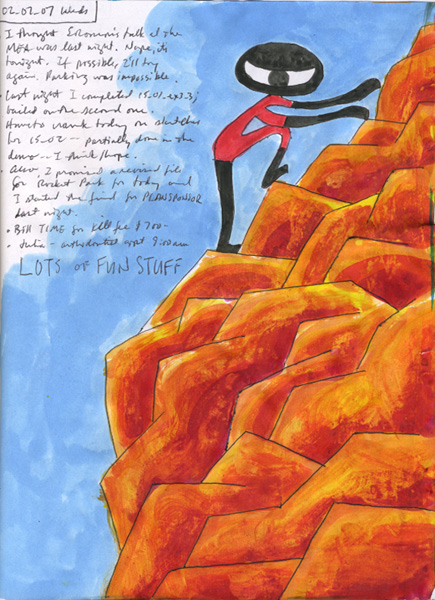 02.02.07 Weds
I thought talk at the
MFA was last night. Nope, it's
tonight. If possible, I'll try
again. Parking was impossible.
• Last night I completed 15-01_ex3.3;
bailed on the second one.
Have to work today on sketches
for 15-02 -- partially done in the
demo -- I think/hope.
• Also I promised a revised file
for Rocket Park for today and
I started the for
last night.
• Bill TIME for kill fee $700-
• Julia - orthodontist appt 9:00am
LOTS OF FUN STUFF